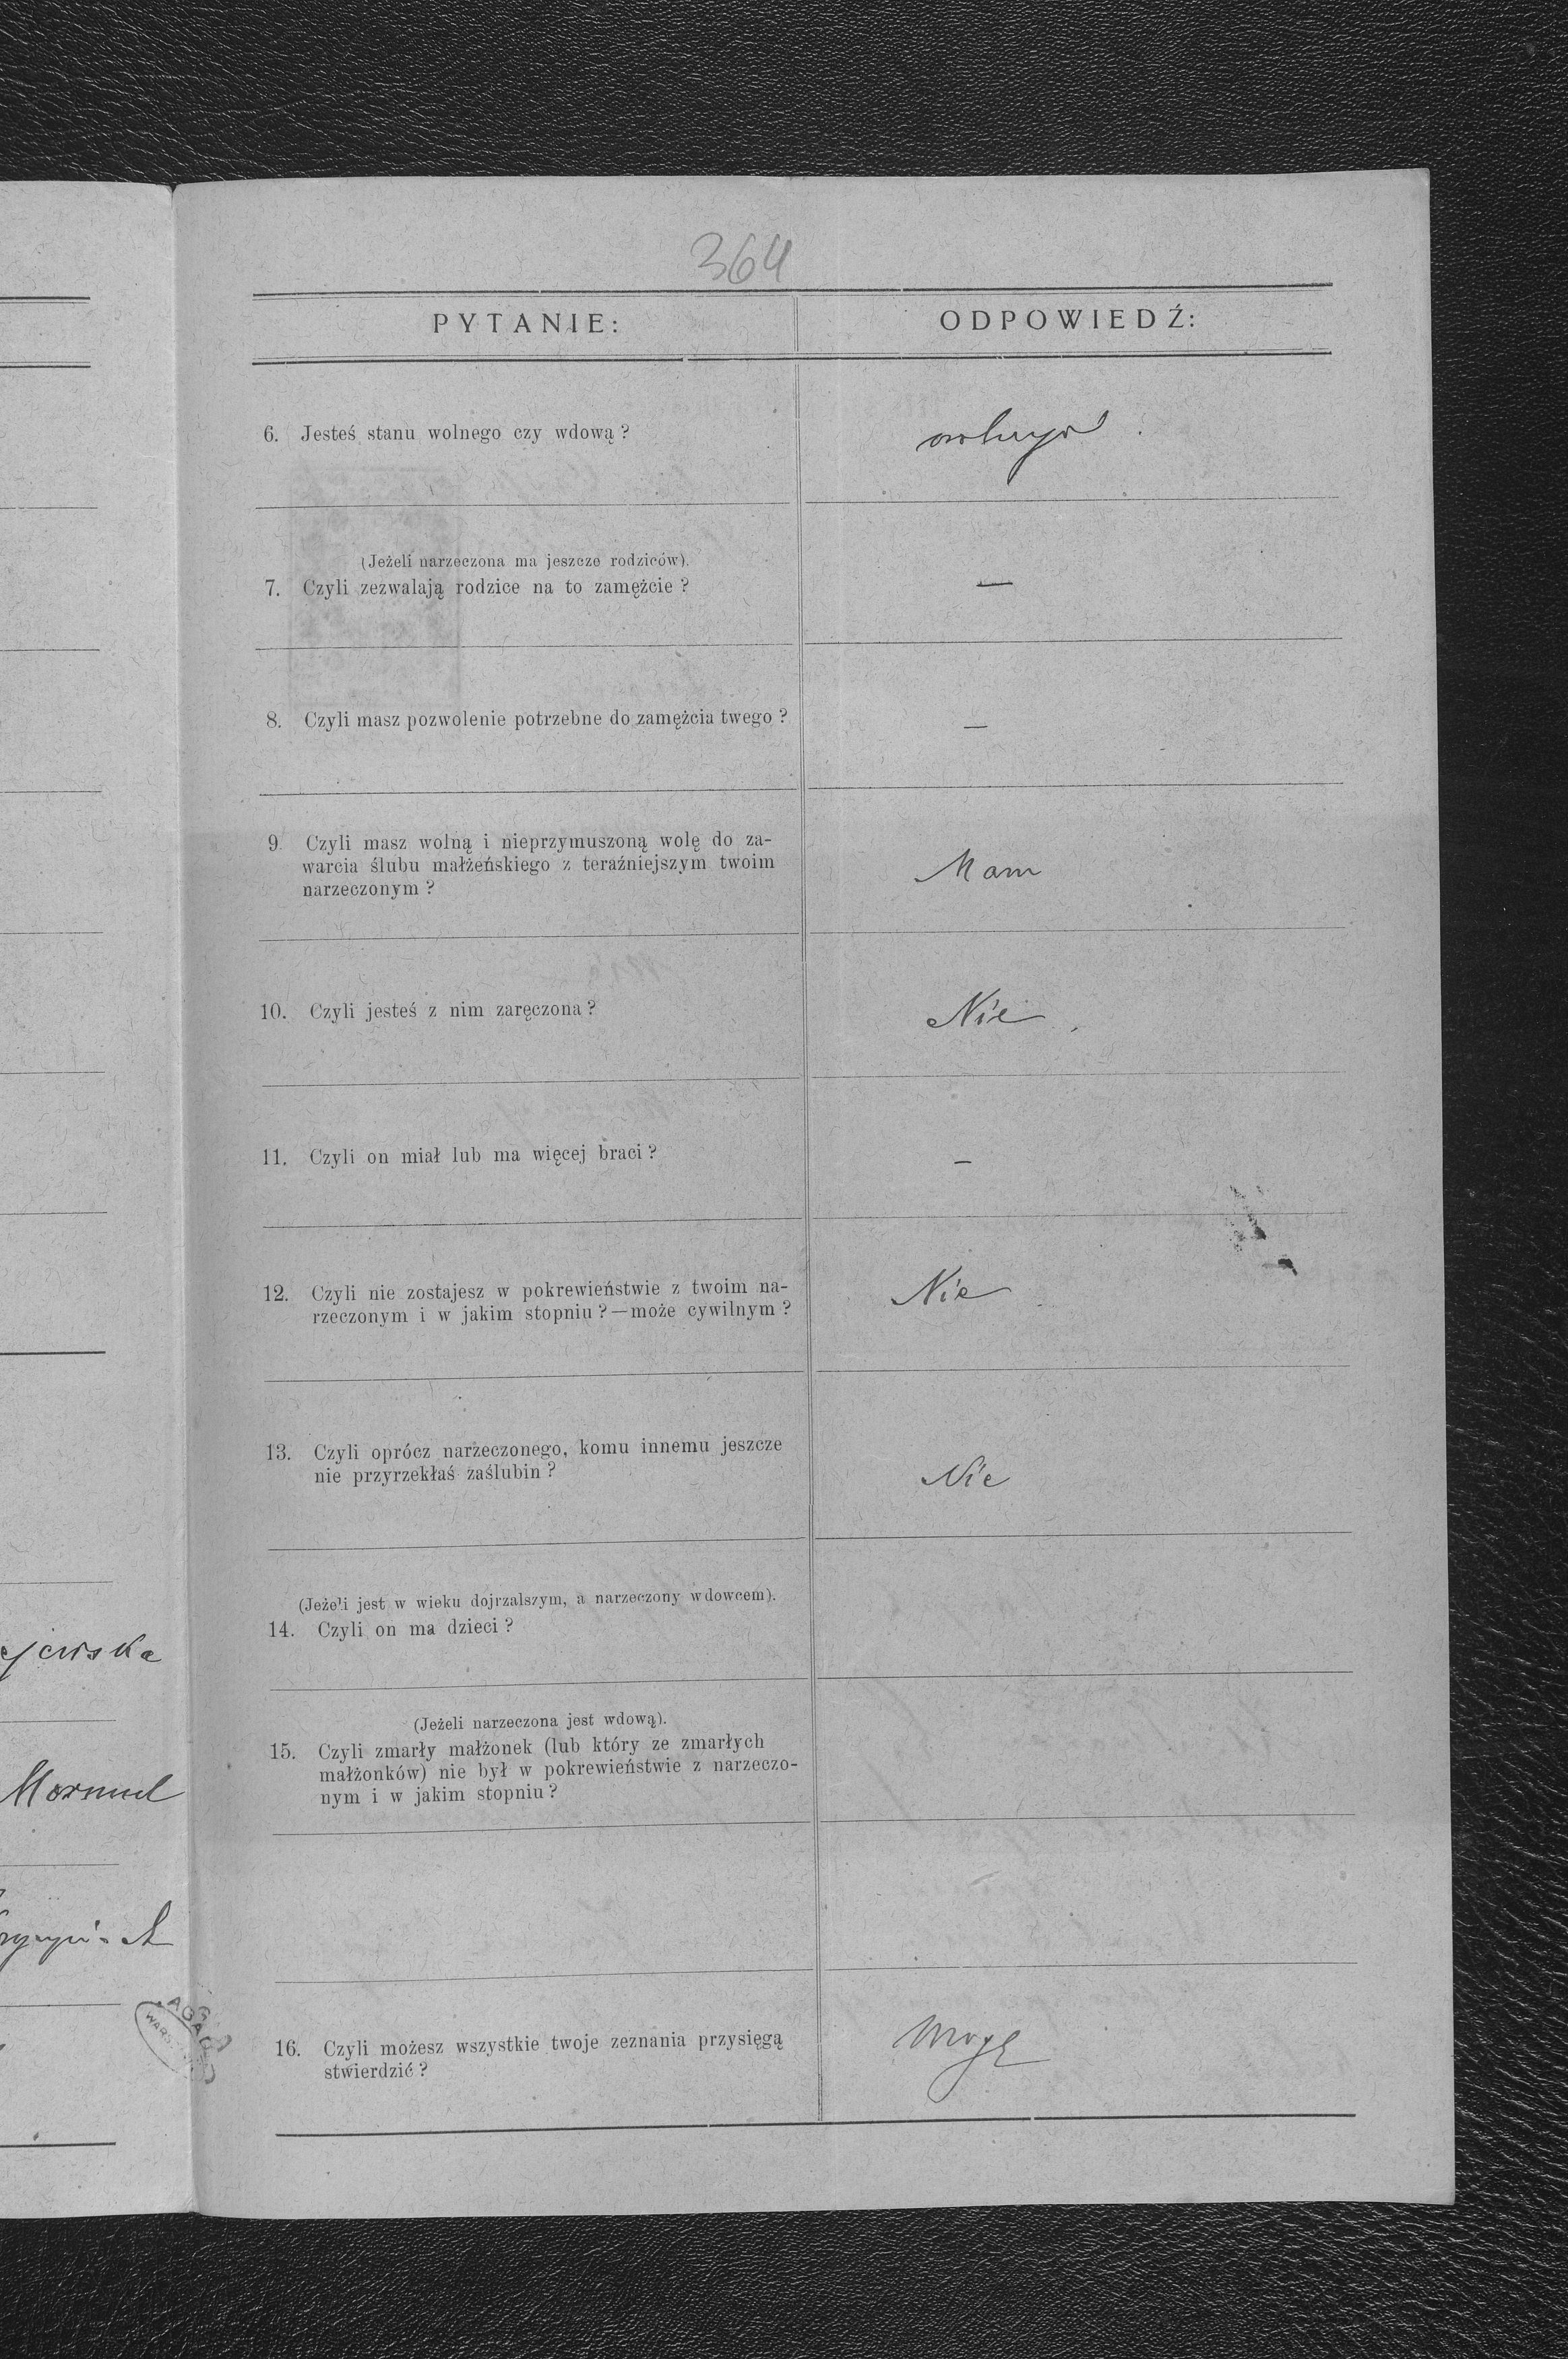 364
PYTANIE:
ODPOWIEDŹ:
6. Jesteś stanu wolnego czy wdową?
(Jeżeli narzeczona ma jeszcze rodziców).
7. Czyli zezwalają rodzice na to zamężcie?
—
8. Czyli masz pozwolenie potrzebne do zamężcia twego?
—
9. Czyli masz wolną i nieprzymuszoną wolę do za-
warcia ślubu małżeńskiego z teraźniejszym twoim
narzeczonym?
Mam
10. Czyli jesteś z nim zaręczona?
Nie
11. Czyli on miał lub ma więcej braci?
–
12. Czyli nie zostajesz w pokrewieństwie z twoim na-
rzeczonym i w jakim stopniu?—może cywilnym?
Nie
13. Czyli oprócz narzeczonego, komu innemu jeszcze
nie przyrzekłaś zaślubin?
Nie
(Jeżeli jest w wieku dojrzalszym, a narzeczony wdowcem).
14. Czyli on ma dzieci?
(Jeżeli narzeczona jest wdową).
15. Czyli zmarły małżonek (lub który ze zmarłych
małżonków) nie był w pokrewieństwie z narzeczo-
nym i w jakim stopniu?
16. Czyli możesz wszystkie twoje zeznania przysięgą
stwierdzić?
Mogę